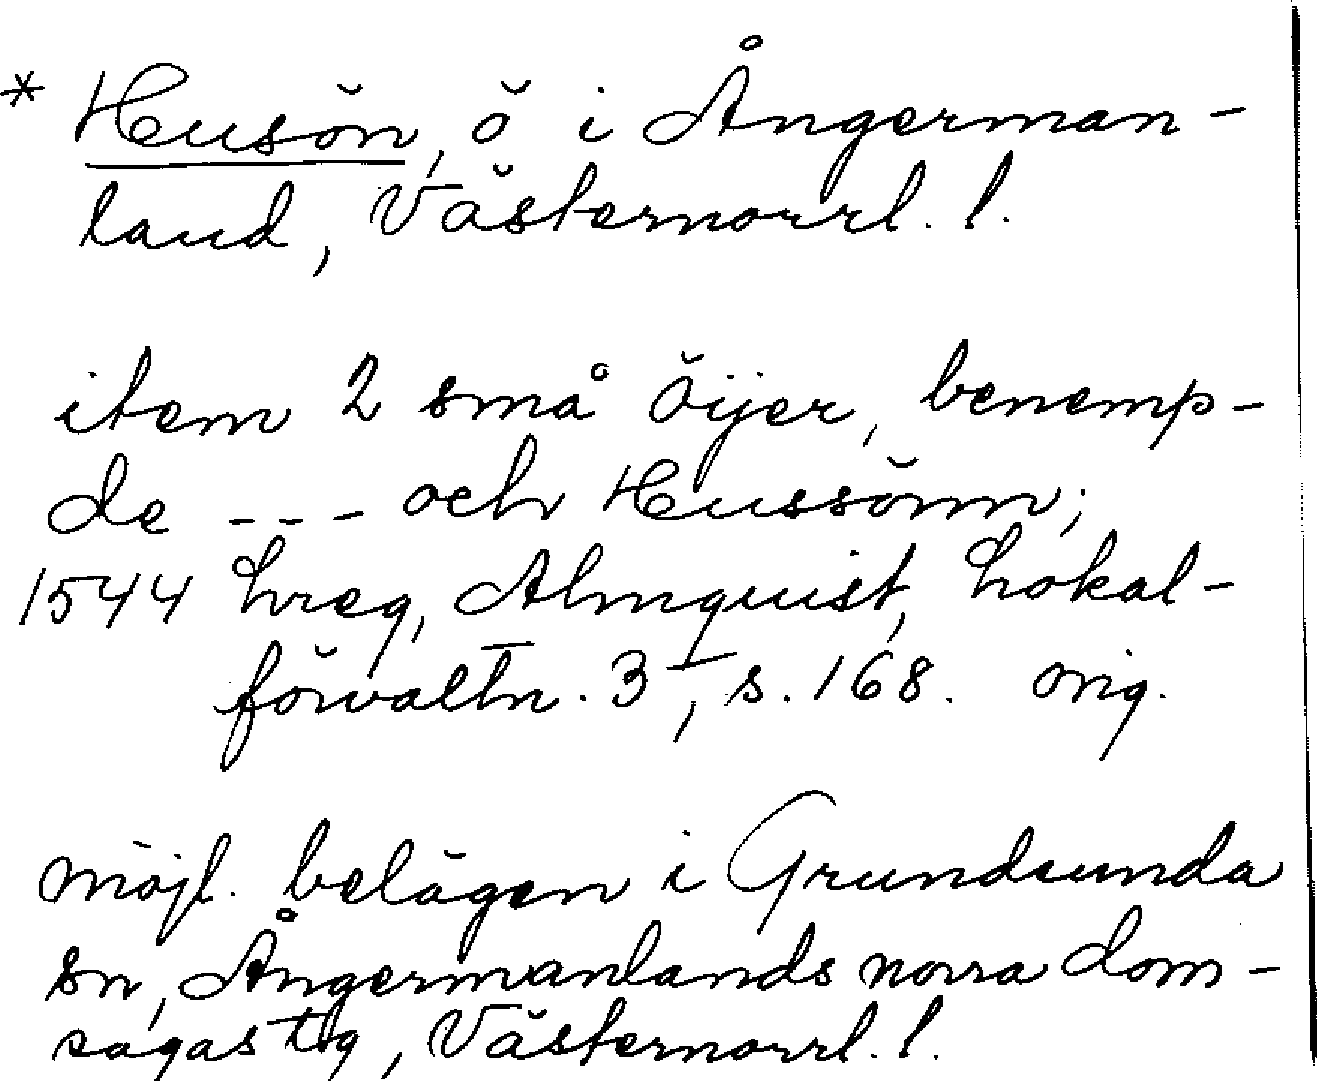 * Husön, ö i Ångerman-
land, Västernorrl. l.
item 2 små öijer, benemp-
de --- och Hussönn;
1544 hreg, Almquist, Lokal-
förvaltn. 3, s. 168. orig.
möjl. belägen i Grundsunda
sn, Ångermanlands norra dom-
sagas tlg, Västernorrl. l.